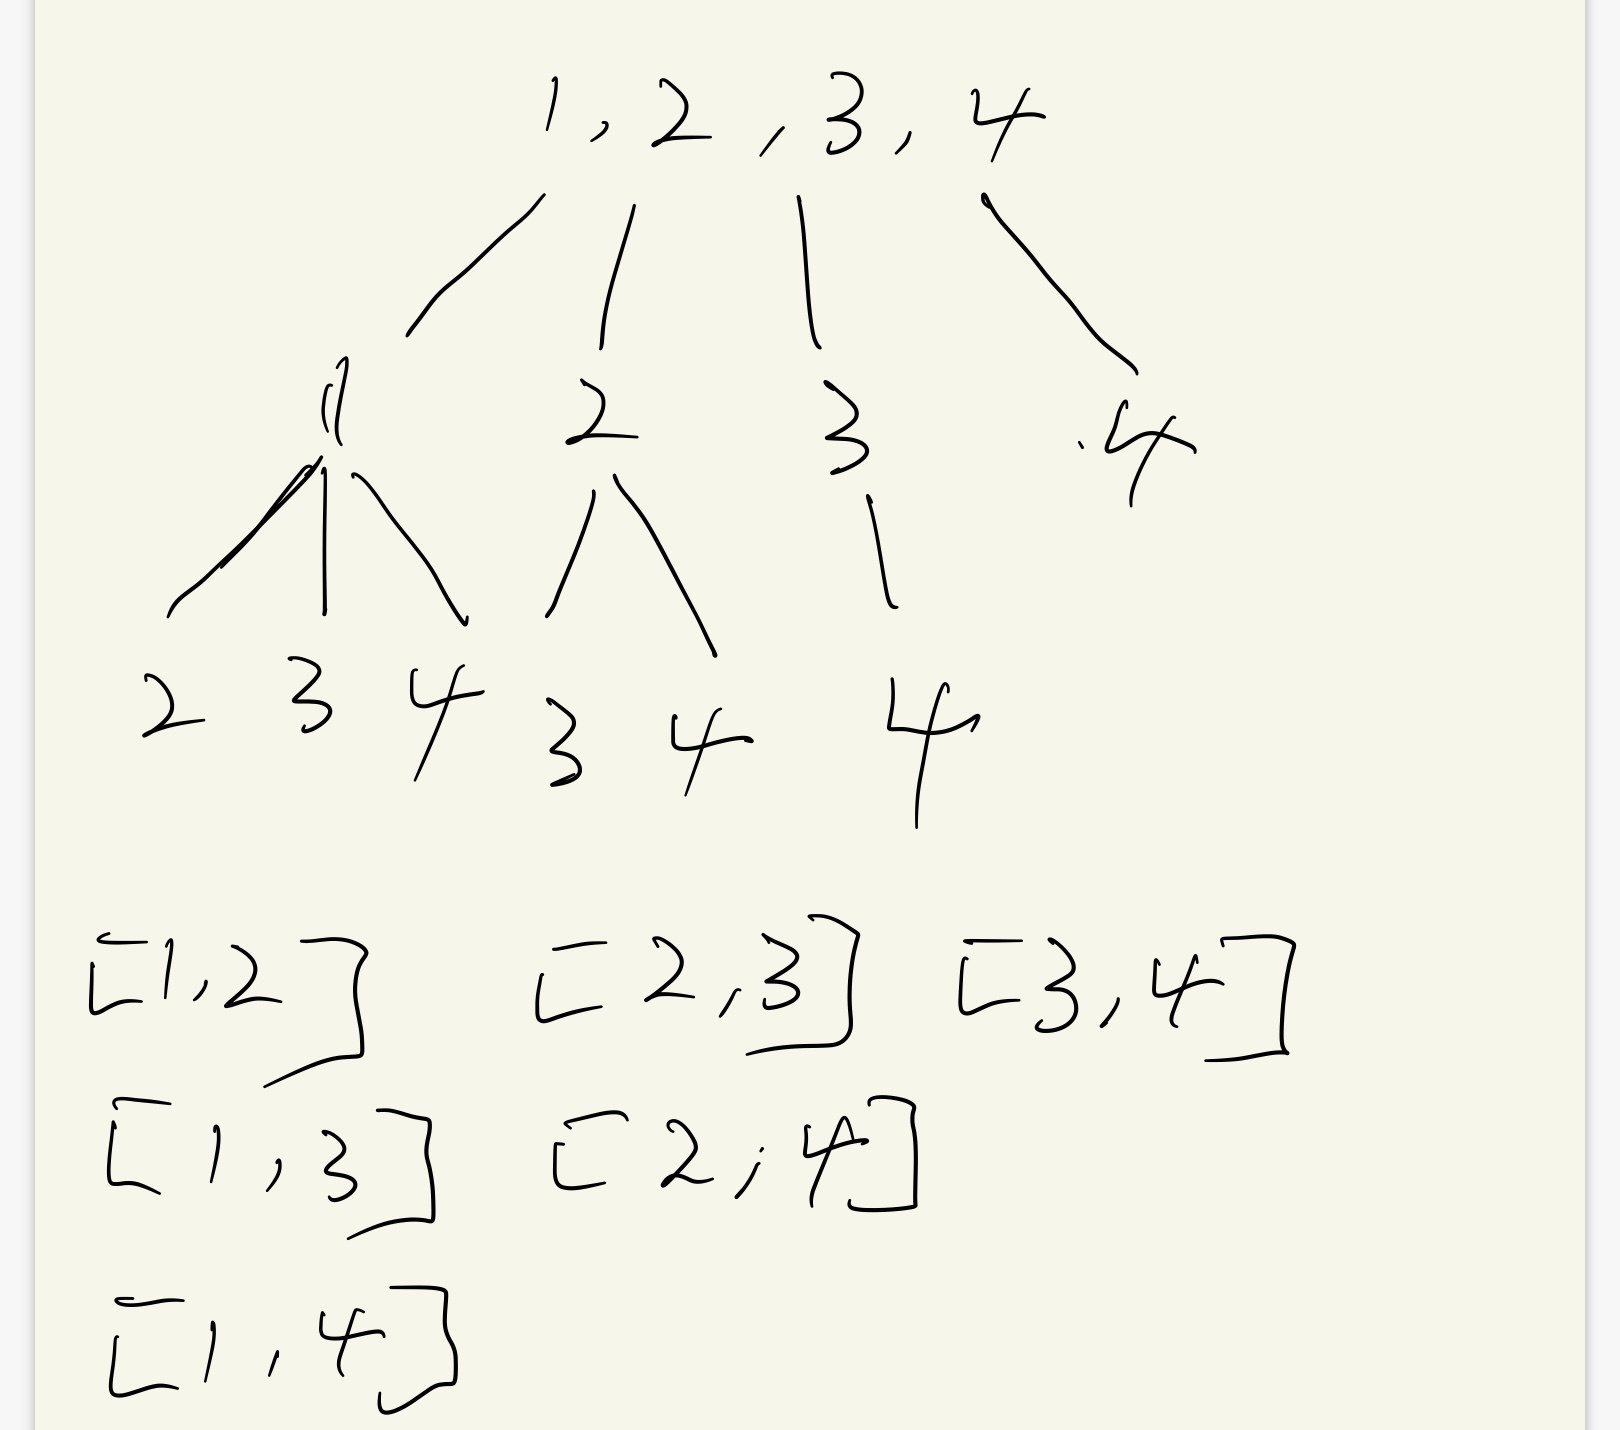 1, 2, 3, 4
1 2 3 4
2 3 4 3 4 4
[1,2] [2,3] [3,4]
[1,3] [2,4]
[1,4]